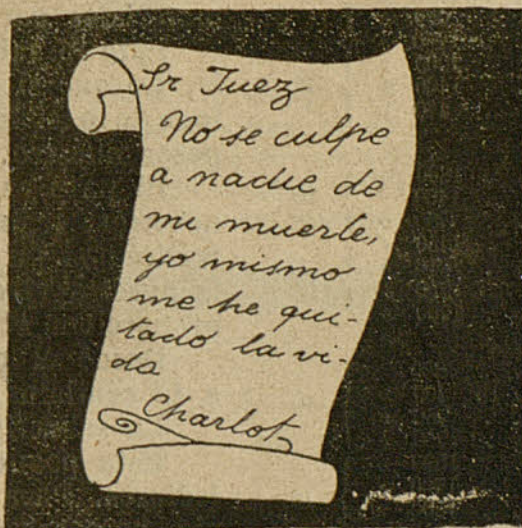 Sr Juez
No se culpe
a nadie de
mi muerte,
yo mismo
me he qui-
tado la vi-
da
Charlot